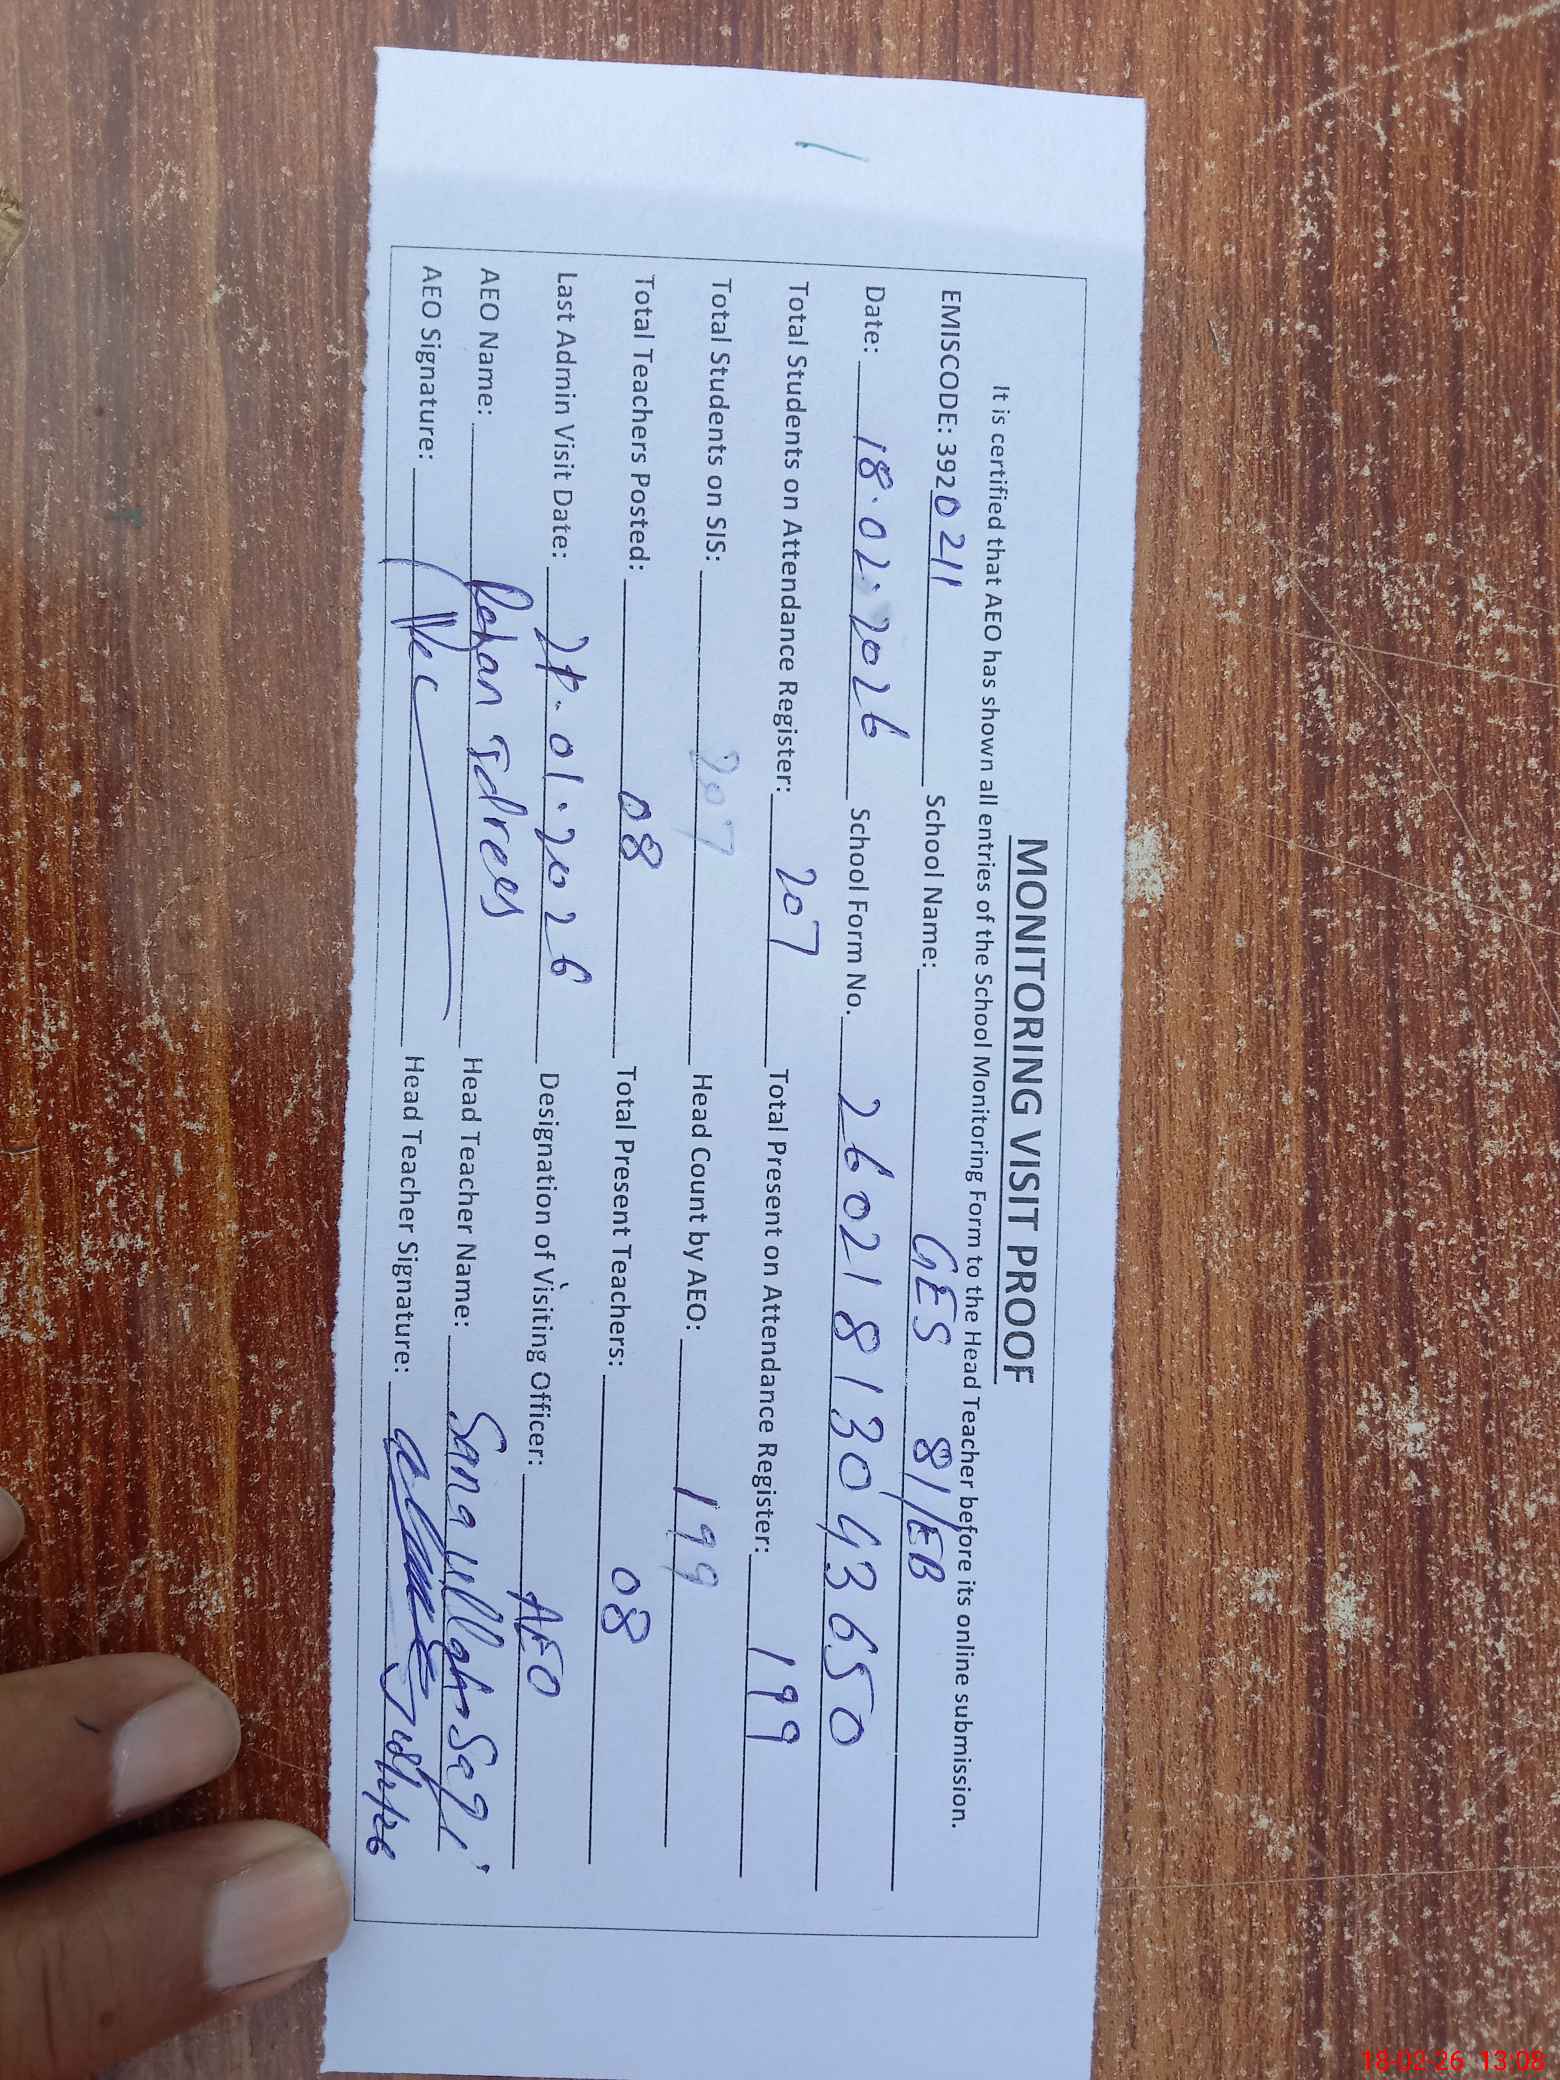 MONITORING VISIT PROOF
It is certified that AEO has shown all entries of the School Monitoring Form to the Head Teacher before its online submission.
EMISCODE: 3920211 School Name: GES 81/EB
Date: 18.02.2026 School Form No. 2602181304 3650
Total Students on Attendance Register: 207 Total Present on Attendance Register: 199
Total Students on SIS: 207 Head Count by AEO: 199
Total Teachers Posted: 08 Total Present Teachers: 08
Last Admin Visit Date: .01.2026 Designation of Visiting Officer: AEO
AEO Name: Rehan Idrees Head Teacher Name: Sana ullah Saqi
AEO Signature: Head Teacher Signature:
18-02-26 13:08